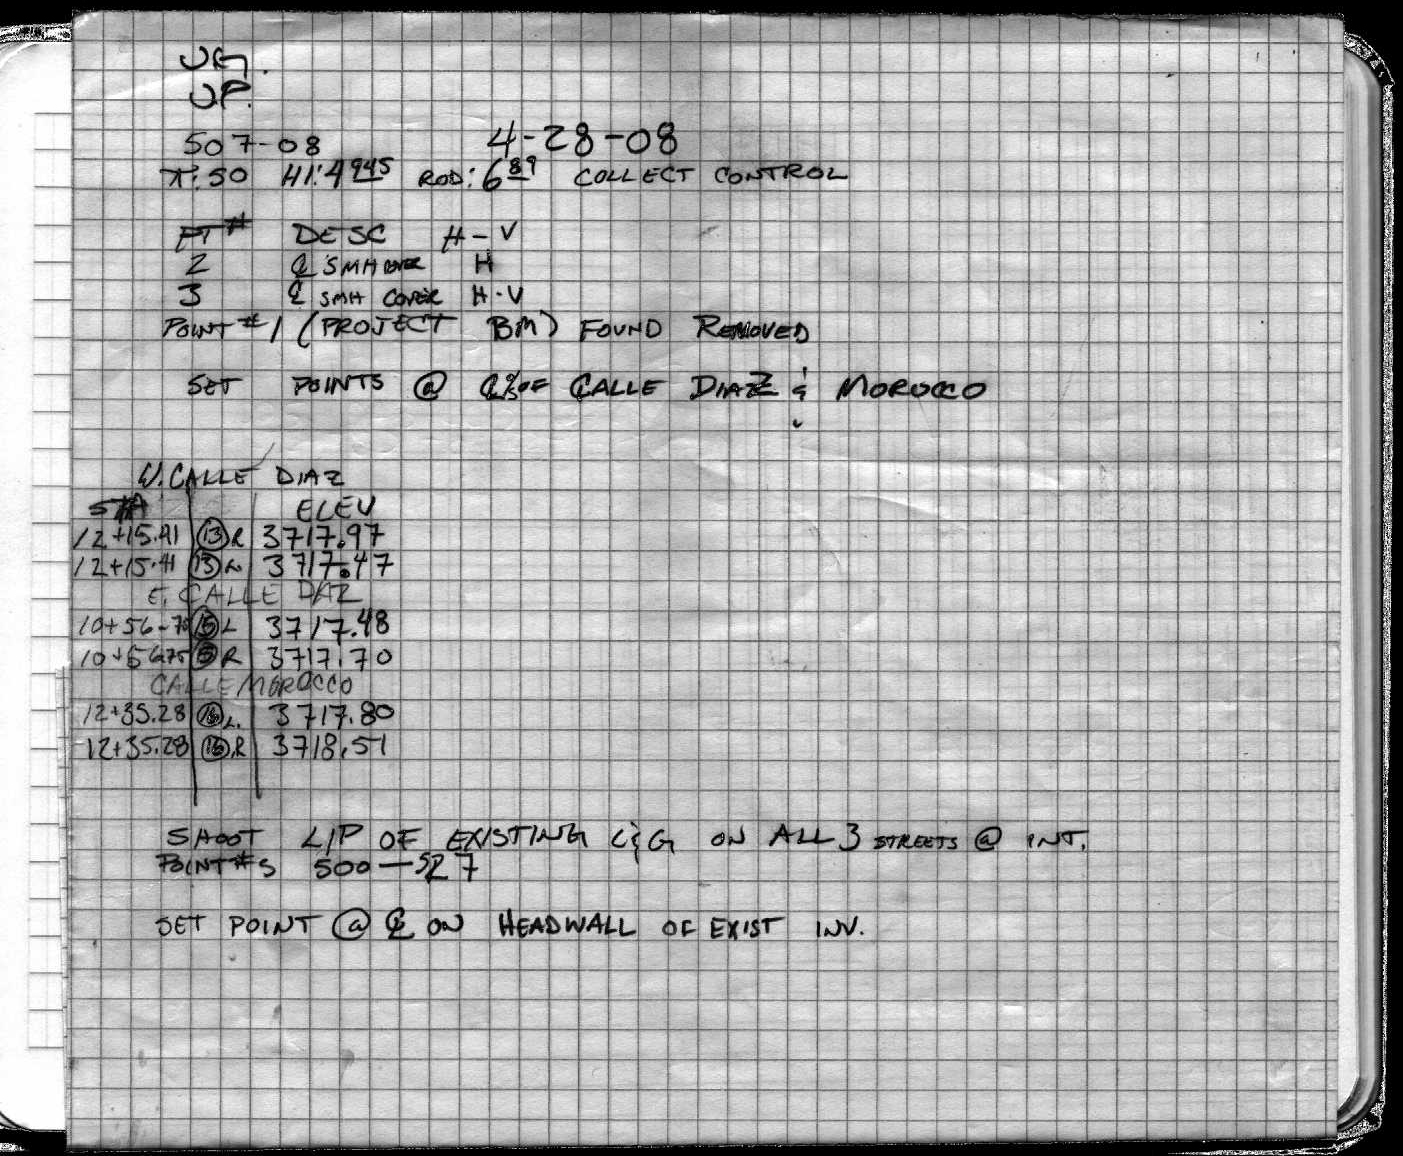 JG.
J.P.
507-08 4-28-08
π:50 HI:4 945 ROD: 6 89 COLLECT CONTROL
PT # DESC H-V
2 ℄ SMH COVER H
3 ℄ SMH COVER H-V
POINT #1 (PROJECT BM) FOUND REMOVED
SET POINTS @ ℄'s OF CALLE DIAZ & MOROCCO
W. CALLE DIAZ
STA ELEV
12+15.41 (13) R 3717.97
12+15.41 (13) L 3717.47
E. CALLE DIAZ
10+56.75 (15) L 3717.48
10+56.75 R 3717.70
CALLE MOROCCO
12+35.28 (16) L. 3717.80
12+35.28 (16) R 3718.51
SHOOT LIP OF EXISTING C&G ON ALL 3 STREETS @ INT.
POINT #S 500—527
SET POINT @ ℄ ON HEADWALL OF EXIST INV.